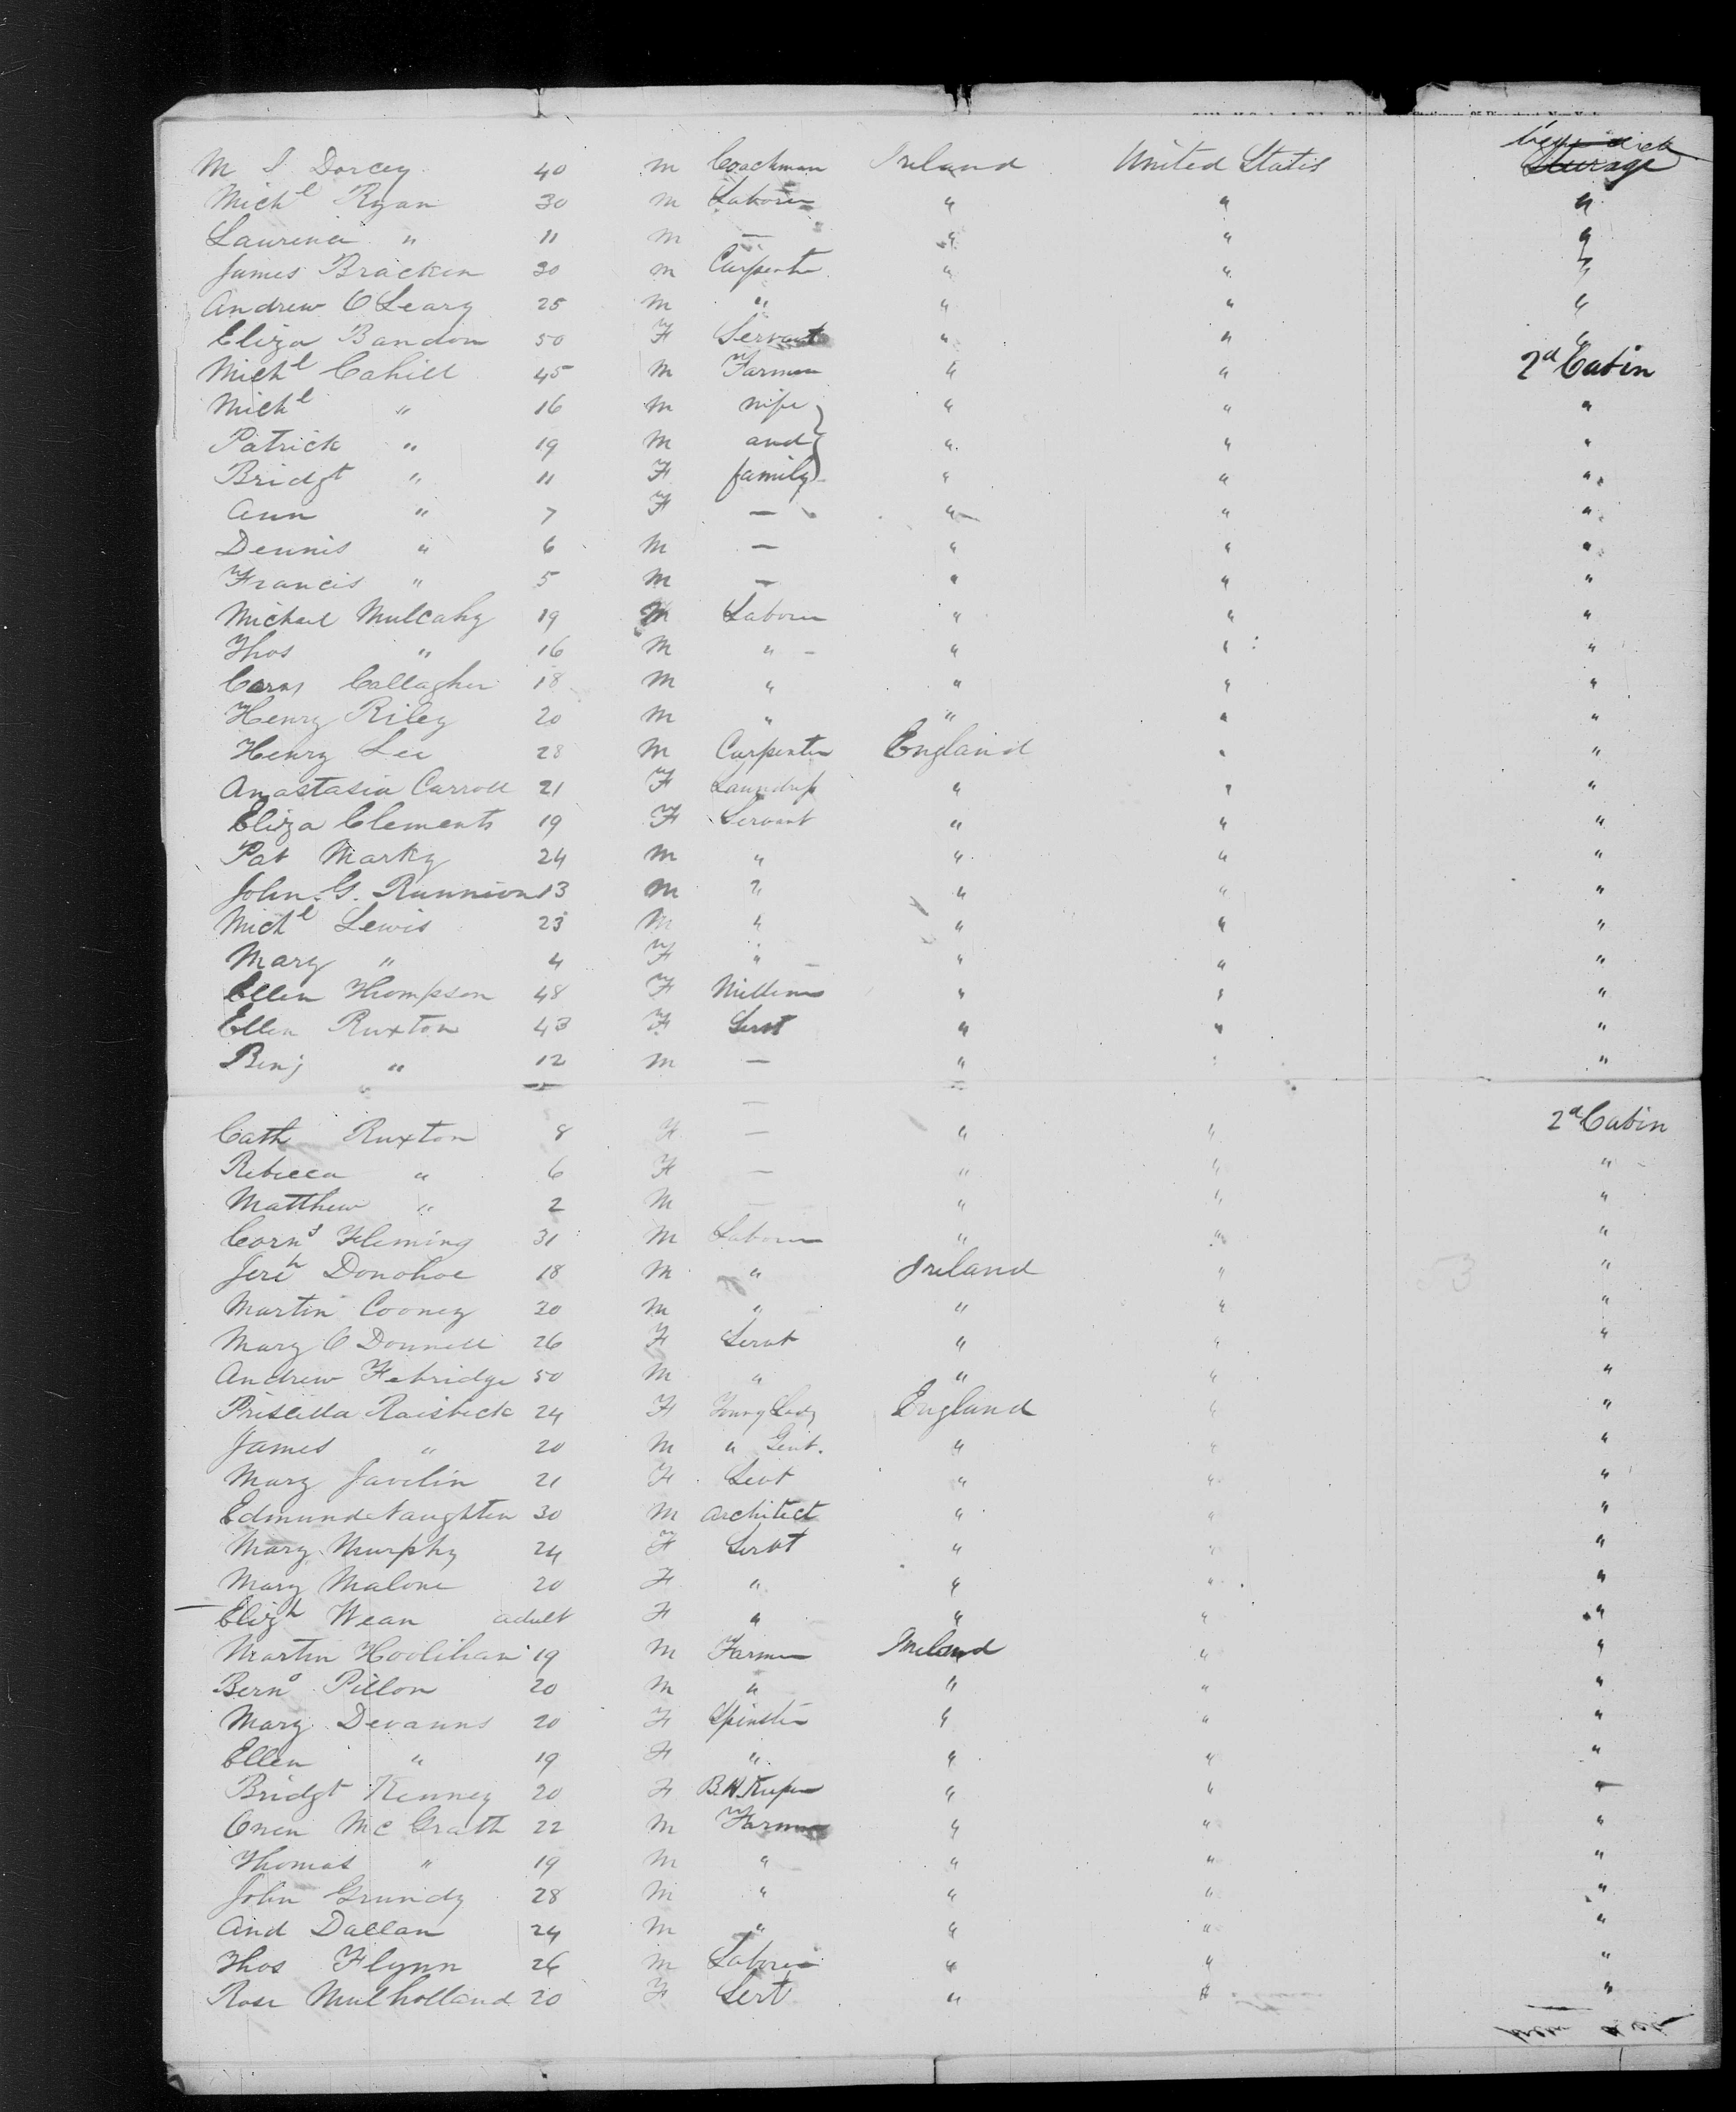 M J Dorcey 40 M Coachman Ireland United States Steerage
Michl Ryan 30 M Laborer " " "
Laurence " 11 M — " " "
James Bracken 30 M Carpenter " " "
Andrew O Leary 25 M " " " "
Eliza Bandon 50 F Servant " " "
Michl Cahill 45 M Farmer " " 2d Cabin
Michl " 16 M wife " " "
Patrick " 19 M and " " "
Bridgt " 11 F family " " "
Ann " 7 F — " " "
Dennis " 6 M — " " "
Francis " 5 M — " " "
Michael Mulcahy 19 M Laborer " " "
Thos " 16 M " " " "
Corns Callagher 18 M " " " "
Henry Riley 20 M " " " "
Henry Lee 28 M Carpenter England " "
Anastasia Carroll 21 F Laundress " " "
Eliza Clements 19 F Servant " " "
Pat Marky 24 M " " " "
John G. Runnion 13 M " " " "
Michl Lewis 23 M " " " "
Mary " 4 F " " " "
Ellen Thompson 48 F Milliner " " "
Ellen Ruxton 43 F Servt " " "
Benj " 12 M — " " "
Cath Ruxton 8 F — " " 2d Cabin
Rebecca " 6 F — " " "
Matthew " 2 M — " " "
Corns Fleming 31 M Laborer " " "
Jerh Donohoe 18 M " Ireland " "
Martin Cooney 20 M " " " "
Mary O Donnell 26 F Servt " " "
Andrew Febridge 50 M " " " "
Priscilla Raisbeck 24 F Young Lady England " "
James " 20 M " Gent. " " "
Mary Javelin 21 F Sevt " " "
Edmund Naughten 30 M Architect " " "
Mary Murphy 24 F Servt " " "
Mary Malone 20 F " " " "
Elizh Wean adult F " " " "
Martin Hoolihan 19 M Farmer Ireland " "
Bernd Pillon 20 M " " " "
Mary Devanns 20 F Spinster " " "
Ellen " 19 F " " " "
Bridgt Kenney 20 F B.H. Keeper " " "
Owen Mc Grath 22 M Farmer " " "
Thomas " 19 M " " " "
John Grundy 28 M " " " "
And Dallan 24 M " " " "
Thos Flynn 26 M Laborer " " "
Rose Mulholland 20 F Sert " " "